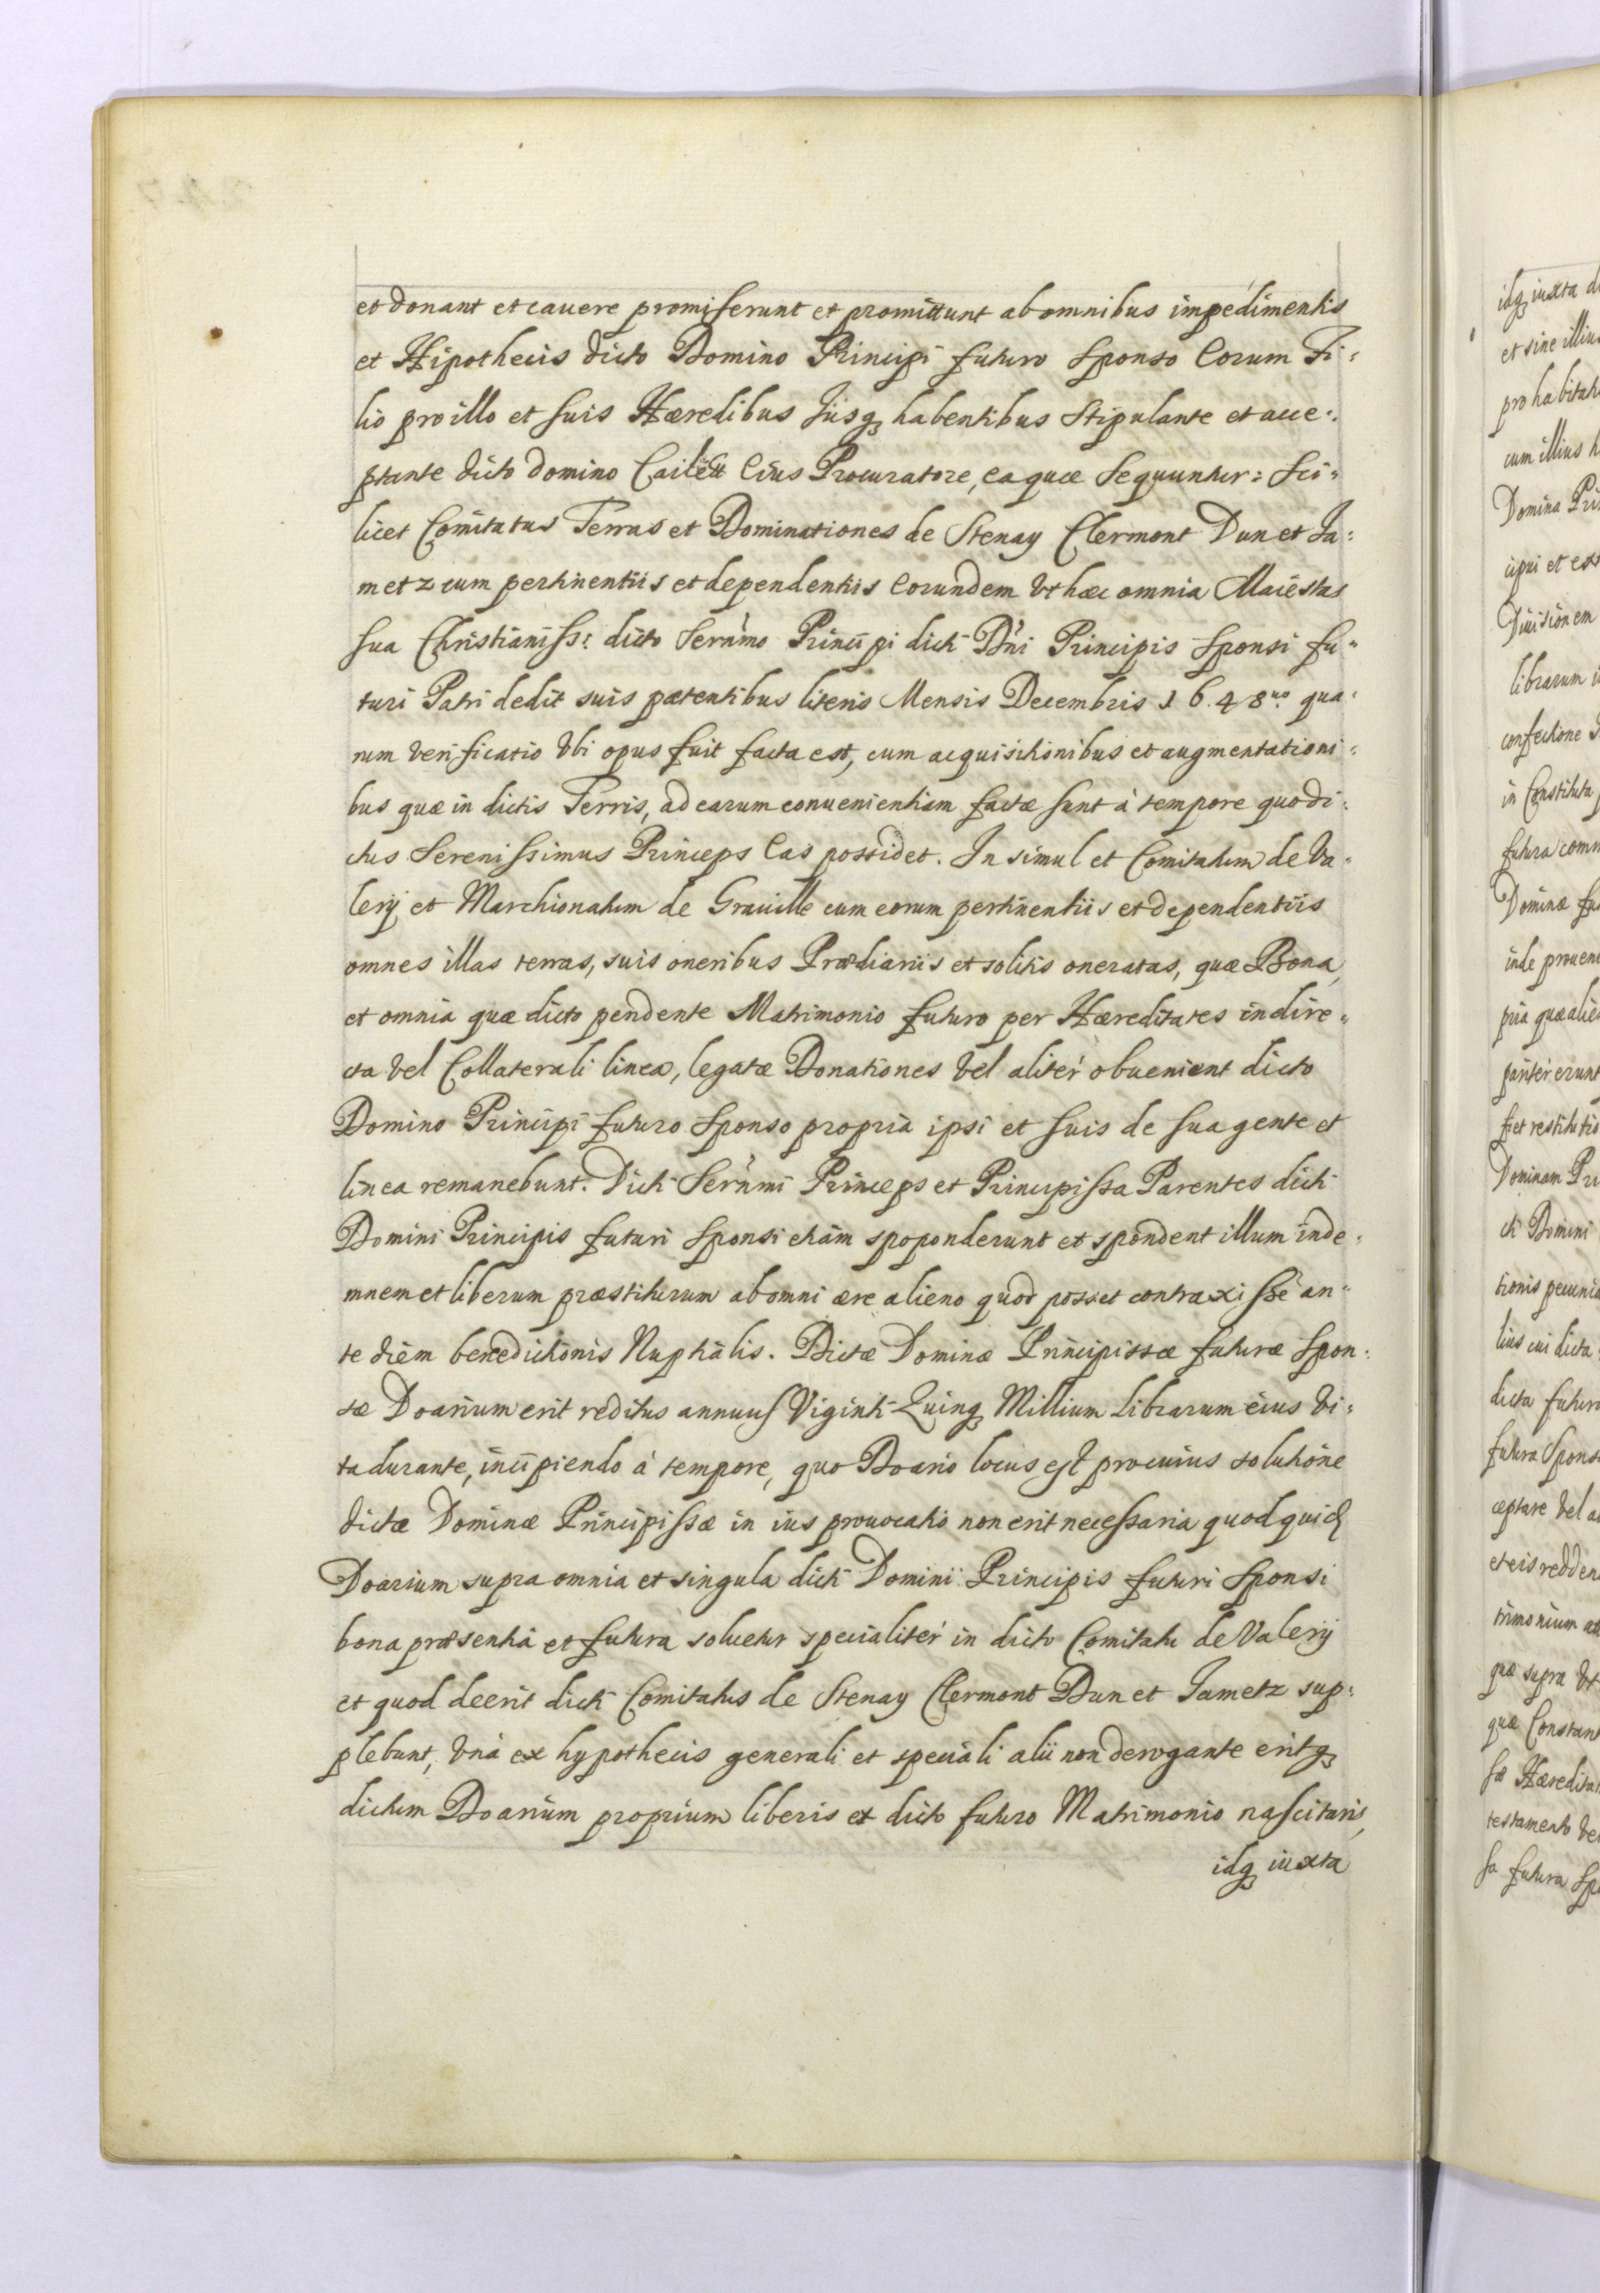 et donant et cauere promiserunt et promittunt ab omnibus impedimentis
et Hipothecis dicto Domino Principi futuro Sponso Eorum Fi=
lio pro illo et suis Hæredibus Jusq habentibus Stipulante et acce=
ptante dicto domino Caillett Eius Procuratore, ea quæ Sequuntur: Sci=
licet Comitatus Terras et Dominationes de Stenay Clermont Dun et Ja=
metz cum pertinentiis et dependentiis Eorundem Vt hæc omnia Maiestas
sua Christianiss: dicto Sernmo Principi dicti Dni Principis Sponsi fu=
turi Patri dedit suis patentibus literis Mensis Decembris 1648uo qua=
rum verificatio Vbi opus fuit facta est, cum acquisitionibus et augmentationi=
bus quæ in dictis Terris, ad earum conuenientiam factæ sunt à tempore quo di=
ctus Serenissimus Princeps Eas possidet. In simul et Comitatum de Va=
lery et Marchionatum de Grauille cum eorum pertinentiis et dependentiis
omnes illas terras, suis oneribus Prædiariis et solitis oneratas, quæ Bona,
et omnia quæ dicto pendente Matrimonio futuro per Hæreditates in dire=
cta Vel Collaterali linea, legatæ Donationes Vel aliter obuenient dicto
Domino Principi futuro Sponso propria ipsi et suis de sua gente et
linea remanebunt. Dicti Sernmi Princeps et Principissa Parentes dicti
Domini Principis futuri Sponsi etiam spoponderunt et spondent illum inde=
mnem et liberum præstiturum ab omni ære alieno quod posset contraxisse an=
te diem benedictionis Nuptialis. Dictæ Dominæ Principissæ futuræ Spon=
sæ Doarium erit reditus annuus Viginti Quinq Millium Librarum eius Vi=
ta durante, incipiendo à tempore, quo Doario locus est pro cuius solutione
dictæ Dominæ Principissæ in ius prouocatio non erit necessaria quod quid
Doarium supra omnia et singula dicti Domini Principis futuri Sponsi
bona præsentia et futura soluetur specialiter in dicto Comitatu de Valery
et quod deerit dicti Comitatus de Stenay Clermont Dun et Jametz sup=
plebunt, Vna ex hypothecis generali et speciali alii non derogante eritq
dictum Doarium proprium liberis et dicto futuro Matrimonio nascituris,
idq iuxta
idq iuxta
et sine illius
pro habita
cum illius h
Domina Pri
cipii et ex
Diuisionem
librarum
confectione
in Constituta
futura com
Dominæ fu
inde proueni
pria quæ alie
pariter erunt
fiet restitutio
Dominam Pri
cti Domini
tionis pecunia
lius cui dicta
dicta futura
futura Spons
ceptare Vel a
et eis redden
trimonium
quæ supra Vt
quæ Constant
sæ Hæredita
testamento Ve
sa futura Spo